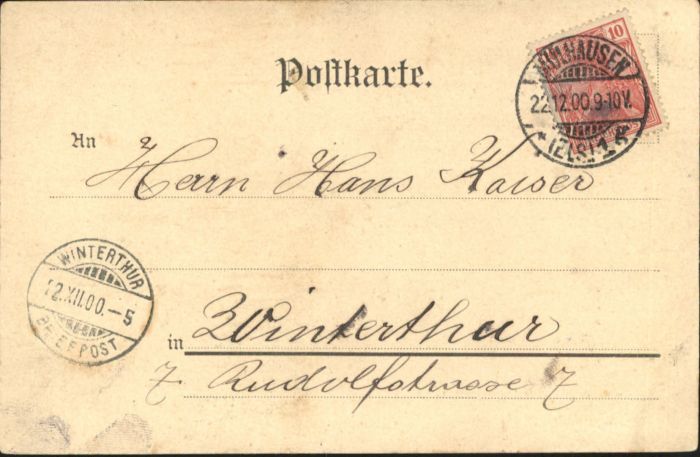 Postkarte.
10
MÜLHAUSEN
22.12.00.9-10V.
*(ELS.) 1 k
An
Herrn Hans Kaiser
WINTERTHUR
22.XII.00.-5
BRIEFPOST
in Winterthur
7. Rudolfstrasse 7